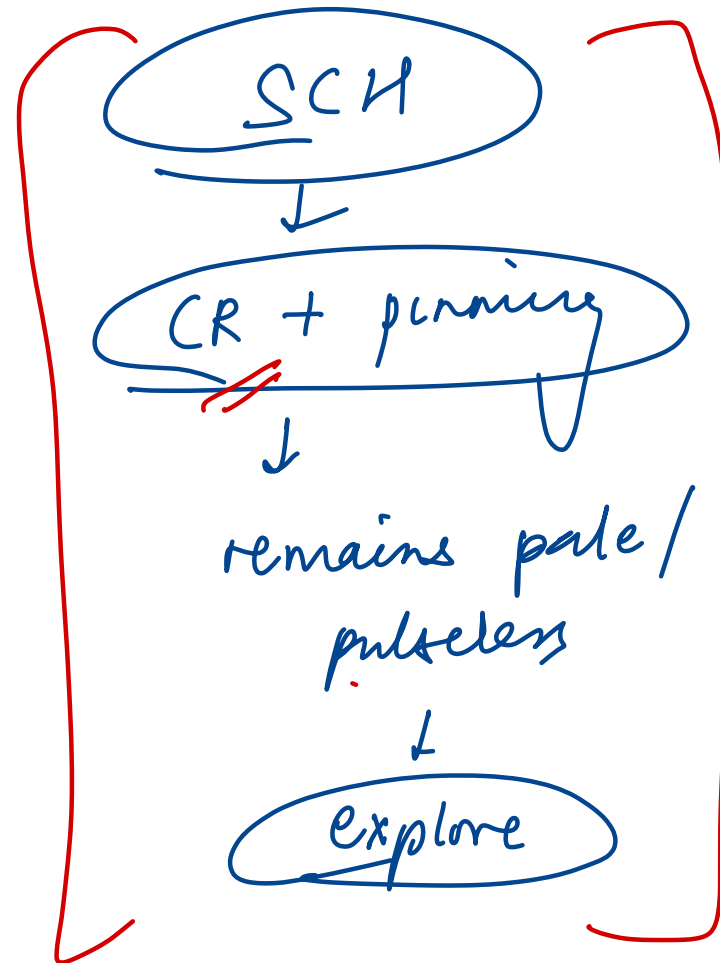 SCH
↓
CR + pinning
↓
remains pale/
pulseless
↓
explore